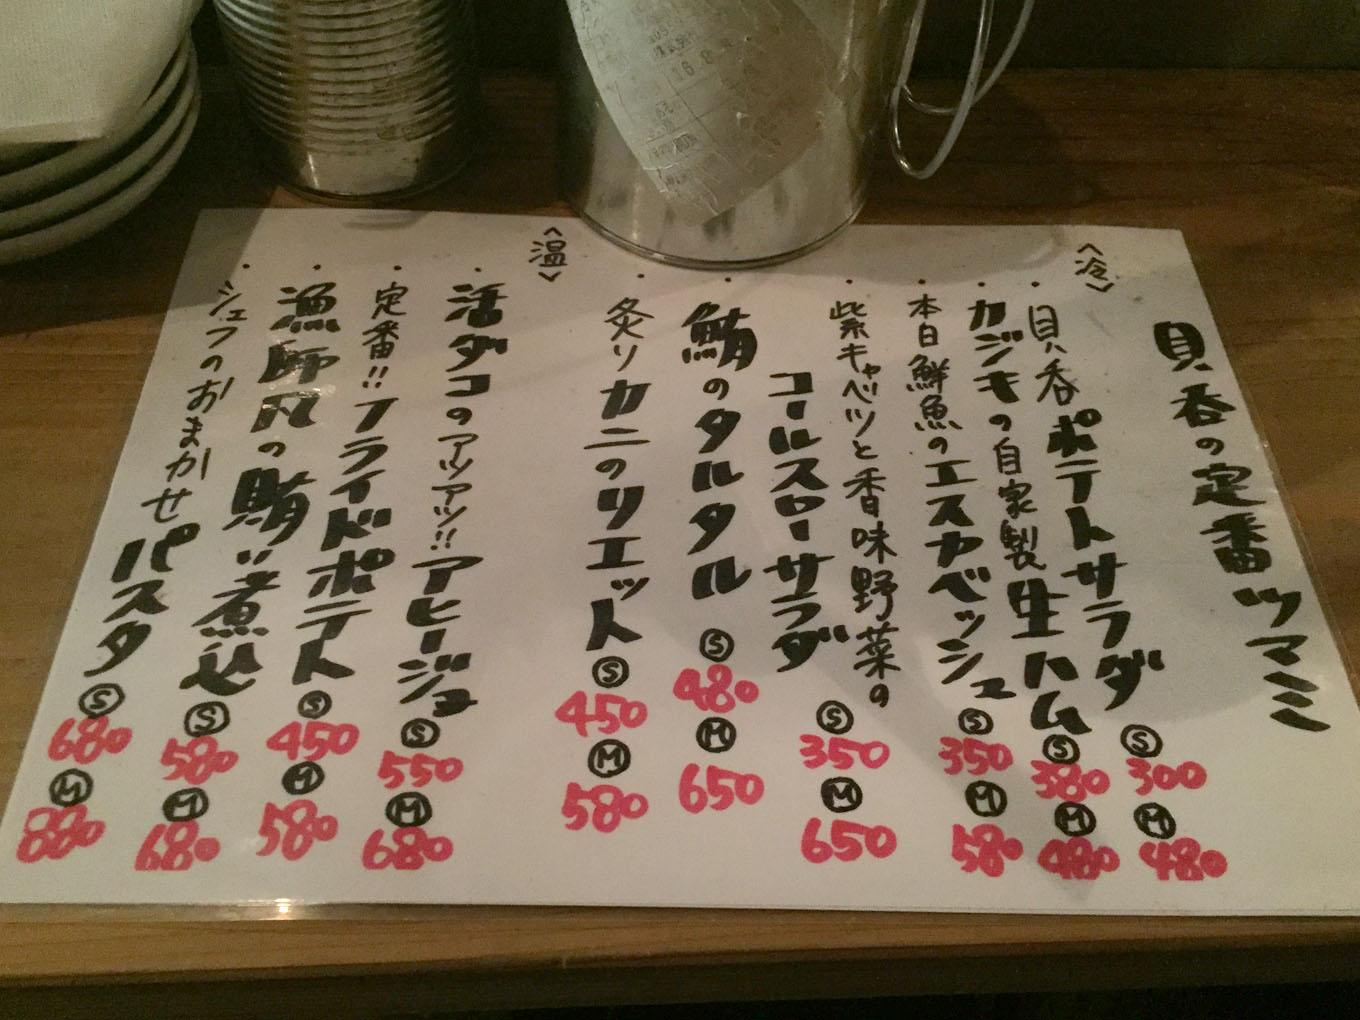 貝呑の定番ツマミ
〈冷〉
・貝呑ポテトサラダ Ⓢ300 Ⓜ480
・カジキの自家製生ハム Ⓢ380 Ⓜ480
・本日鮮魚のエスカベッシュ Ⓢ350 Ⓜ580
・紫キャベツと香味野菜の
コールスローサラダ Ⓢ350 Ⓜ650
・鮪のタルタル Ⓢ480 Ⓜ650
・炙りカニのリエット Ⓢ450 Ⓜ580
〈温〉
・活ダコのアツアツ!!アヒージョ Ⓢ550 Ⓜ680
・定番!!フライドポテト Ⓢ450 Ⓜ580
・漁師風の賄い煮込 Ⓢ580 Ⓜ680
・シェフのおまかせパスタ Ⓢ680 Ⓜ880